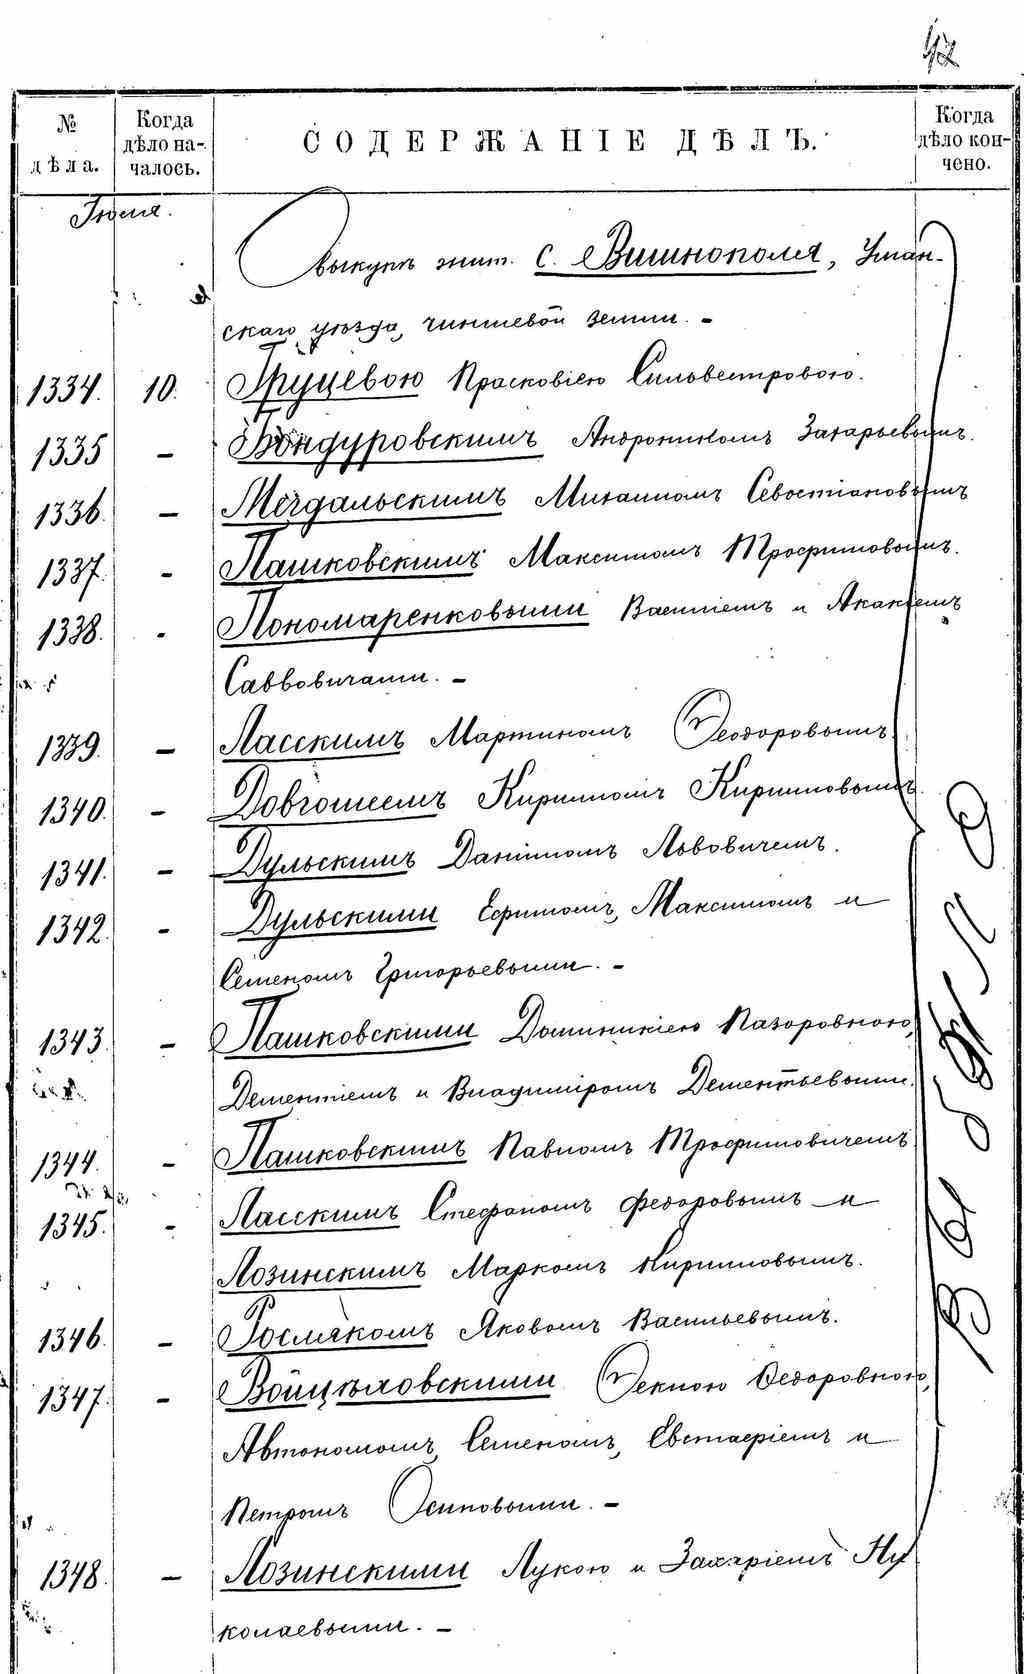 42
№ дѣла.
Когда дѣло началось.
СОДЕРЖАНІЕ ДѢЛЪ.
Когда дѣло кончено.
Іюля.
О выкупѣ жит. с. Вишнополя, Уман-
скаго уѣзда, чиншевой земли. –
1334. 10. Груцевою Прасковіею Сильвестровою.
1335 – Бондуровскимъ Андроникомъ Захарьевымъ.
1336. – Мегдальскимъ Михаиломъ Севостіановымъ
1337. – Пашковскимъ Максимомъ Трофимовымъ.
1338. – Пономаренковыми Василіемъ и Акакіемъ
Саввовичами. –
1339. – Ласскимъ Мартиномъ Ѳеодоровымъ.
1340. – Довгошеемъ Кириломъ Кириловымъ.
1341. – Дульскимъ Даніиломъ Львовичемъ.
1342. – Дульскими Ефимомъ, Максимомъ и
Семеномъ Григорьевыми. –
1343. – Пашковскими Доминикіею Назаровною,
Дементіемъ и Владиміромъ Дементьевыми.
1344. – Пашковскимъ Павломъ Трофимовичемъ.
1345. – Ласскимъ Стефаномъ Федоровымъ и
Лозинскимъ Маркомъ Кириловымъ.
1346. – Росмякомъ Яковомъ Васильевымъ.
1347. – Войцѣховскими Ѳеклою Ѳедоровною,
Автономомъ, Семеномъ, Евстафіемъ и
Петромъ Осиповыми. –
1348. – Лозинскими Лукою и Захаріемъ Ни-
колаевыми. –
Выбыло